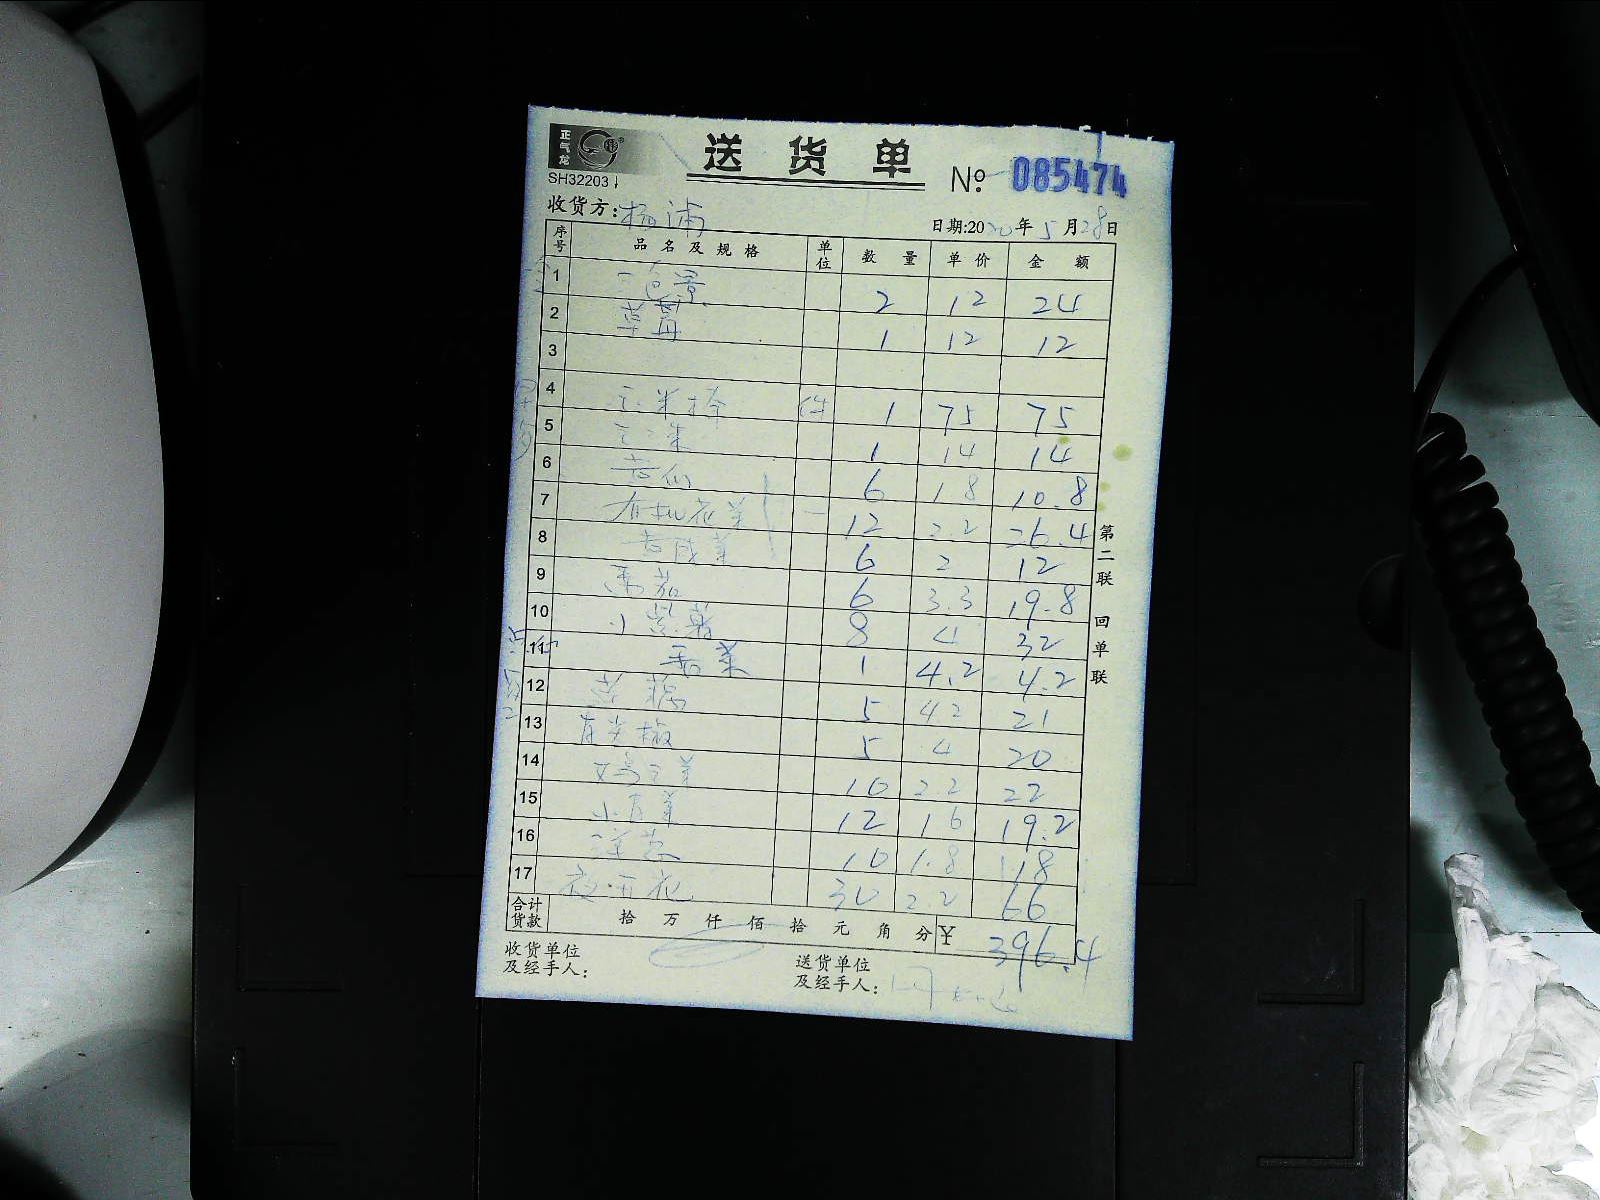 正气龙
SH32203
送 货 单 № 085474
收货方: 杨浦 日期:2020年5月28日
序号 品名及规格 单位 数量 单价 金额
1 三色堇 2 12 24
2 草莓 1 12 12
3
4 玉米棒 件 1 75 75
5 1 14 14
6 6 1.8 10.8
7 有机花菜 12 2.2 26.4
8 6 2 12
9 番茄 6 3.3 19.8
10 小紫薯 8 4 32
11 香菜 1 4.2 4.2
12 5 4.2 21
13 青尖椒 5 4 20
14 10 2.2 22
15 小青菜 12 1.6 19.2
16 洋葱 10 1.8 18
17 30 2.2 66
合计货款 拾 万 仟 佰 拾 元 角 分 ¥ 396.4
收货单位及经手人:
送货单位及经手人:
第二联 回单联